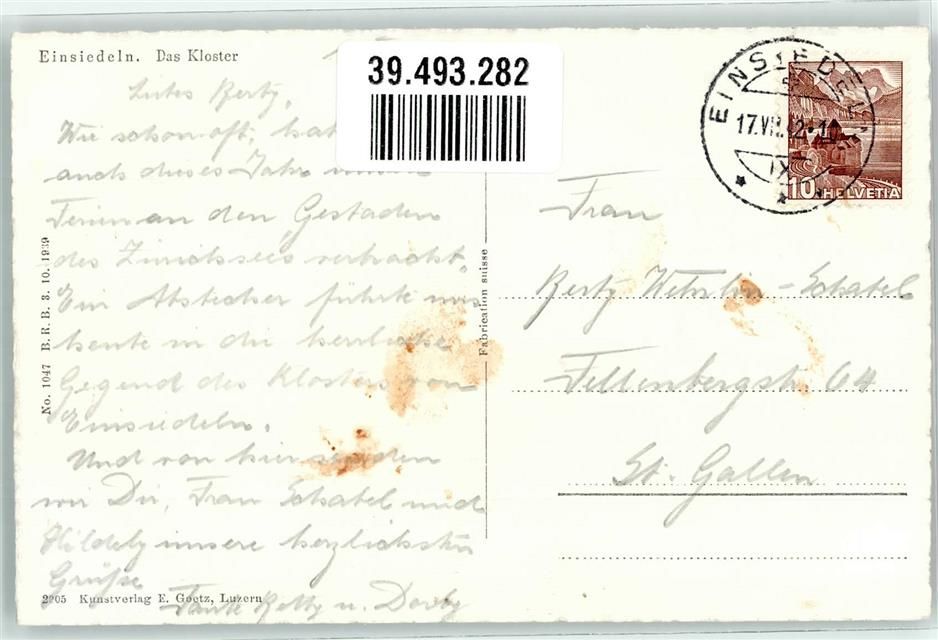 Einsiedeln. Das Kloster
39.493.282
Liebes Berty,
Wie schon oft,
auch dieses Jahr
Ferien an den Gestaden
des Zürichsees verbracht.
Ein Abstecher führte uns
heute in die herrliche
Gegend des Klosters von
Einsiedeln.
Und von hier senden
wir Dir, Frau Schatel und
Hildely unsere herzlichsten
Grüsse
Tante Betty u.
2205 Kunstverlag E. Goetz, Luzern
No. 1047 B.R.B. 3. 10. 1939
Fabrication suisse
EINSIEDELN
17.VII.
10 HELVETIA
Frau
Berty Wehrlin-Schatel
Fellenbergstr. 64
St. Gallen